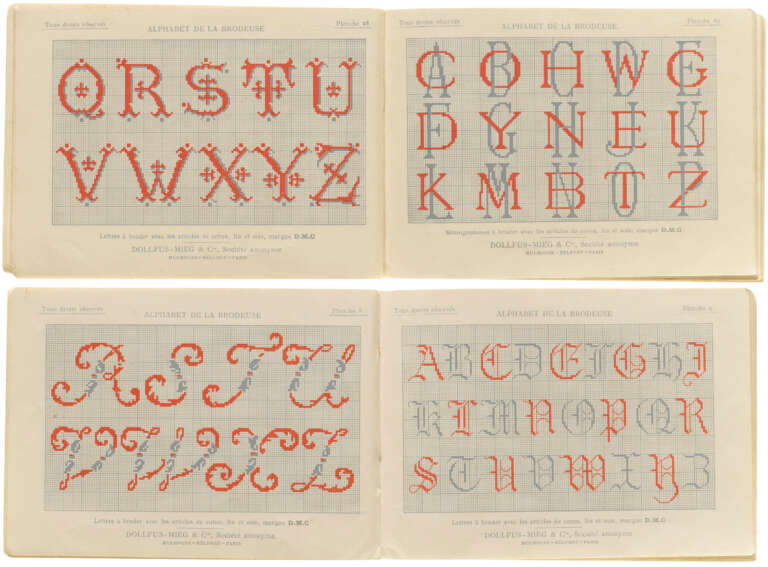 Tous droits réservés ALPHABET DE LA BRODEUSE Planche
Q R S T U
V W X Y Z
Lettres à broder avec les articles de coton, lin et soie, marque D.M.C
DOLLFUS-MIEG & Cie, Société anonyme
MULHOUSE-BELFORT-PARIS
Tous droits réservés ALPHABET DE LA BRODEUSE. Planche
AC BO CH DW EG
FD GY HN JE KU
LK MM NB OT PZ
Monogrammes à broder avec les articles de coton, lin et soie, marque D.M.C
DOLLFUS-MIEG & Cie, Société anonyme
MULHOUSE-BELFORT-PARIS
Tous droits réservés ALPHABET DE LA BRODEUSE Planche
R S T U
V W X Y Z
Lettres à broder avec les articles de coton, lin et soie, marque D.M.C
DOLLFUS-MIEG & Cie, Société anonyme
MULHOUSE-BELFORT-PARIS
Tous droits réservés ALPHABET DE LA BRODEUSE Planche
A B C D E F G H I
K L M N O P Q R
S T U V W X Y Z
Lettres à broder avec les articles de coton, lin et soie, marque D.M.C
DOLLFUS-MIEG & Cie, Société anonyme
MULHOUSE-BELFORT-PARIS